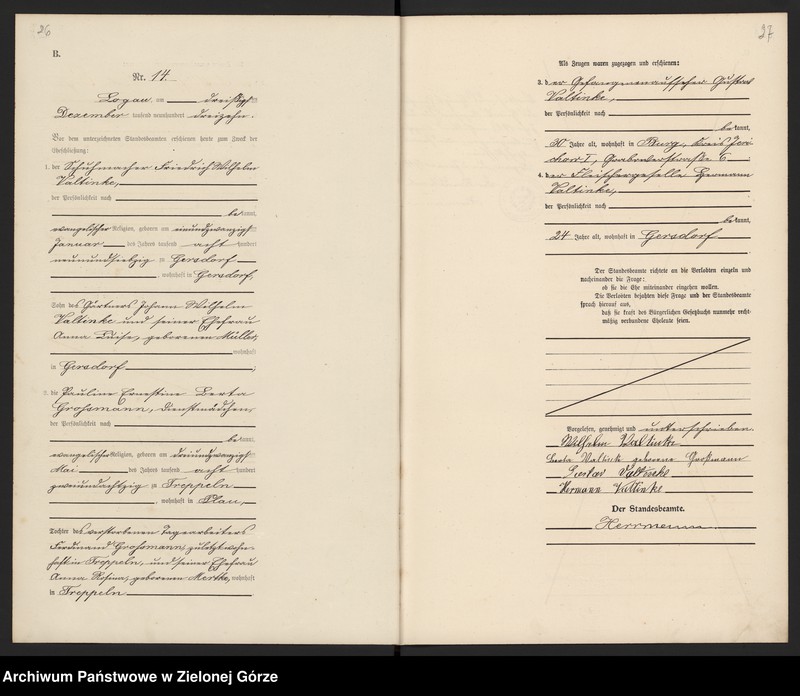 26
B.
Nr. 14.
Logau, am dreißigsten
Dezember tausend neunhundert dreizehn.
Vor dem unterzeichneten Standesbeamten erschienen heute zum Zweck der
Eheschließung:
1. der Schuhmacher Friedrich Wilhelm
Valtinke,
der Persönlichkeit nach
bekannt,
evangelischer Religion, geboren am neunundzwanzigsten
Januar des Jahres tausend acht hundert
neunundsiebzig in Gersdorf
, wohnhaft in Gersdorf,
Sohn des Gärtners Johann Wilhelm
Valtinke und seiner Ehefrau
Anna Luise, geborenen Müller,
wohnhaft
in Gersdorf;
2. die Pauline Ernestine Berta
Grossmann, Dienstmädchen,
der Persönlichkeit nach
bekannt,
evangelischer Religion, geboren am dreiundzwanzigsten
Mai des Jahres tausend acht hundert
zweiundachtzig in Treppeln
, wohnhaft in Plau,
Tochter des verstorbenen Tagearbeiters
Ferdinand Grossmann, zuletzt wohn-
haft in Treppeln, und seiner Ehefrau
Anna Rosina, geborenen wohnhaft
in Treppeln
27
Als Zeugen waren zugezogen und erschienen:
3. der Gefangenenaufseher Gustav
Valtinke,
der Persönlichkeit nach
bekannt,
30 Jahre alt, wohnhaft in Burg, Kreis Jeri-
chow I, Grabowerstraße 6
4. der Fleischergeselle Hermann
Valtinke,
der Persönlichkeit nach
bekannt,
24 Jahre alt, wohnhaft in Gersdorf
Der Standesbeamte richtete an die Verlobten einzeln und
nacheinander die Frage:
ob sie die Ehe miteinander eingehen wollen.
Die Verlobten bejahten diese Frage und der Standesbeamte
sprach hierauf aus,
daß sie kraft des Bürgerlichen Gesetzbuchs nunmehr recht-
mäßig verbundene Eheleute seien.
Vorgelesen, genehmigt und unterschrieben.
Wilhelm Valtinke
Berta Valtink geborene Großmann
Gustav Valtinke
Hermann Valtinke
Der Standesbeamte.
Herrmann
Archiwum Państwowe w Zielonej Górze